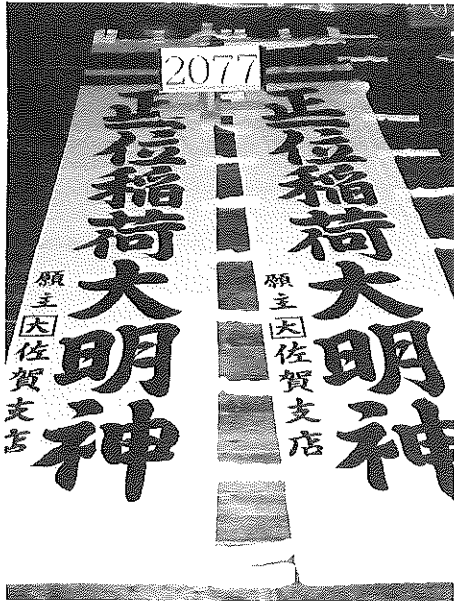 2077
正一位稲荷大明神
願主 大 佐賀支店
正一位稲荷大明神
願主 大 佐賀支店